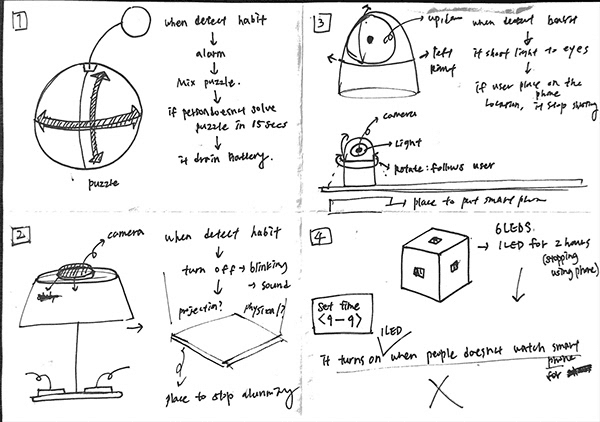 1
when detect habit
alarm
Mix puzzle.
if person doesnot solve
puzzle in 15 secs
it drain battery.
puzzle
2
camera
when detect habit
turn off → blinking
→ sound
projection?
physical?
place to stop
3
up,down
left
right
when detect
it shoot light to eyes
if user place on the
phone
location, it stop
camera
light
rotate: follows user
place to put smart phone
4
6 LEDS.
→ 1 LED for 2 hours
(stopping
using phone)
Set time
<9-9>
1 LED
It turns on when people doesnot watch smart
phone
for